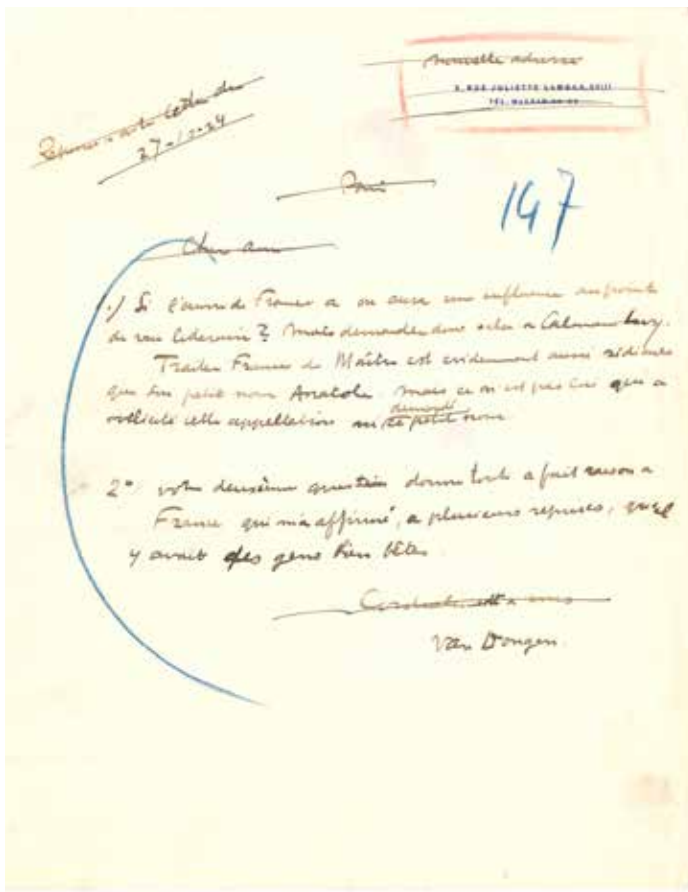 nouvelle adresse
5, RUE JULIETTE LAMBER, XVII
TEL. WAGRAM
Réponse à votre lettre du
27-12-24
Paris
147
Cher ami
1./ Si l'œuvre de France a ou aura une influence au point
de vue littéraire? Mais demandez donc cela a Calman Levy.
Traiter France de Maître est evidemment aussi ridicule
que son petit nom Anatole. Mais ce n'est pas lui qui a
sollicité cette appellation ni demandé ce petit nom
2° votre deuxième question donne tout a fait raison a
France qui m'a affirmé, a plusieurs reprises, qu'il
y avait des gens bien bêtes
Cordialement a vous
Van Dongen.